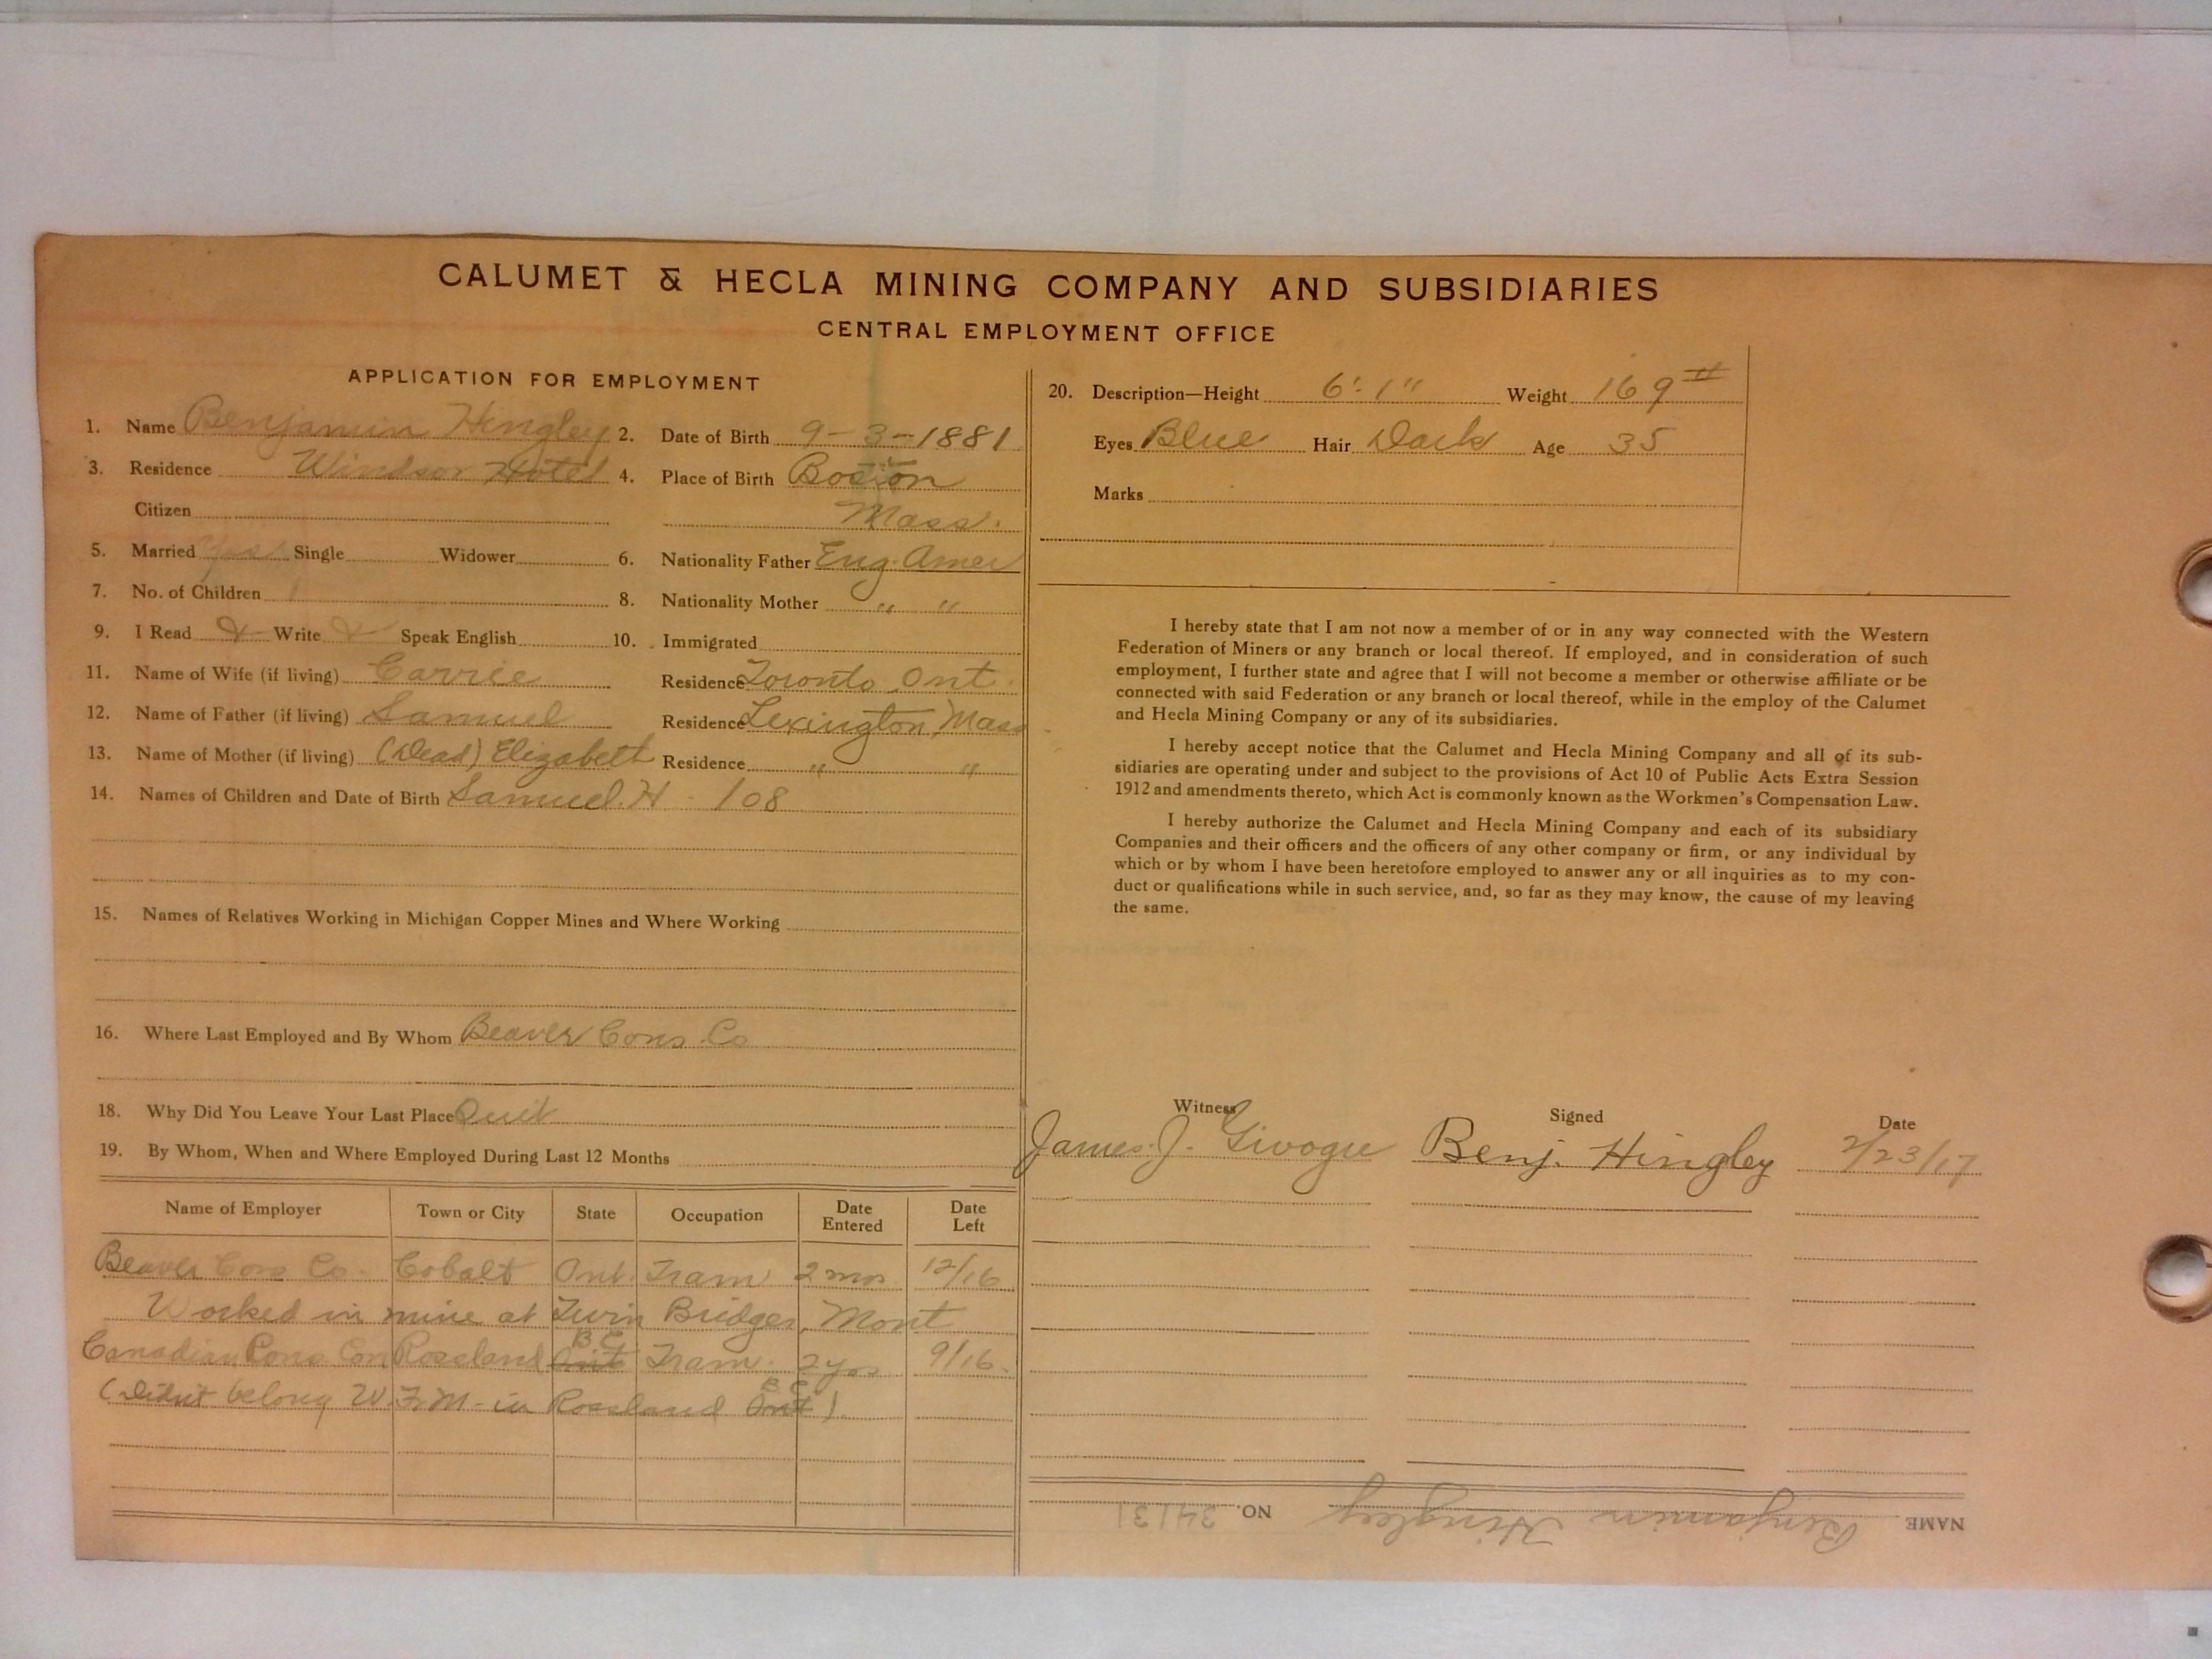 CALUMET & HECLA MINING COMPANY AND SUBSIDIARIES
CENTRAL EMPLOYMENT OFFICE
APPLICATION FOR EMPLOYMENT
1. Name Benjamin Hingley 2. Date of Birth 9-3-1881
3. Residence Windsor Hotel 4. Place of Birth Boston
Citizen Mass.
5. Married Yes Single Widower 6. Nationality Father Eng. Amer
7. No. of Children 1 8. Nationality Mother " "
9. I Read Write Speak English 10. Immigrated
11. Name of Wife (if living) Carrie Residence Toronto, Ont.
12. Name of Father (if living) Samuel Residence Lexington, Mass
13. Name of Mother (if living) (Dead) Elizabeth Residence " "
14. Names of Children and Date of Birth Samuel. H - 108
15. Names of Relatives Working in Michigan Copper Mines and Where Working
16. Where Last Employed and By Whom Beaver Cons. Co
18. Why Did You Leave Your Last Place Quit
19. By Whom, When and Where Employed During Last 12 Months
Name of Employer Town or City State Occupation Date Entered Date Left
Beaver Cons Co. Cobalt Ont. Tram 2 mos. 12/16
Worked in mine at Twin Bridges, Mont
B C
Canadian Cons Rossland Ont Tram. 2 yrs 9/16.
B C
(Didn't belong W.F.M. in Rossland Ont).
20. Description—Height 6'-1" Weight 169#
Eyes Blue Hair Dark Age 35
Marks
I hereby state that I am not now a member of or in any way connected with the Western
Federation of Miners or any branch or local thereof. If employed, and in consideration of such
employment, I further state and agree that I will not become a member or otherwise affiliate or be
connected with said Federation or any branch or local thereof, while in the employ of the Calumet
and Hecla Mining Company or any of its subsidiaries.
I hereby accept notice that the Calumet and Hecla Mining Company and all of its sub-
sidiaries are operating under and subject to the provisions of Act 10 of Public Acts Extra Session
1912 and amendments thereto, which Act is commonly known as the Workmen's Compensation Law.
I hereby authorize the Calumet and Hecla Mining Company and each of its subsidiary
Companies and their officers and the officers of any other company or firm, or any individual by
which or by whom I have been heretofore employed to answer any or all inquiries as to my con-
duct or qualifications while in such service, and, so far as they may know, the cause of my leaving
the same.
Witness Signed Date
James J. Givogu Benj. Hingley 2/23/17
NAME Benjamin Hingley NO. 34131